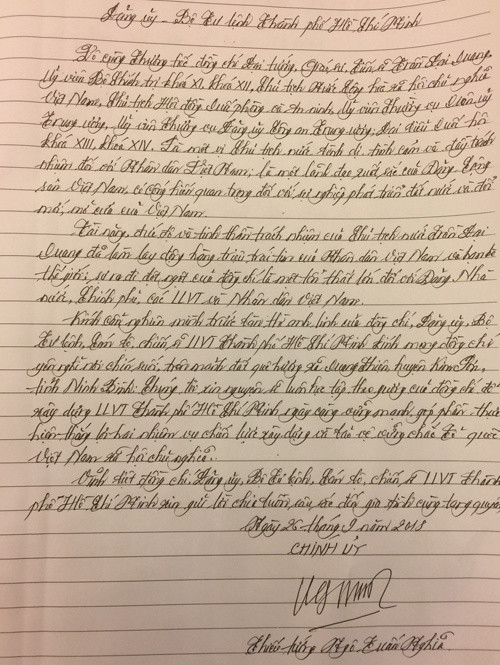 Đảng ủy - Bộ Tư lệnh Thành phố Hồ Chí Minh
Vô cùng thương tiếc đồng chí Đại tướng, Giáo sư, Tiến sĩ Trần Đại Quang,
Ủy viên Bộ Chính trị khoá XI, khoá XII, Chủ tịch nước Cộng hòa xã hội chủ nghĩa
Việt Nam, Chủ tịch Hội đồng Quốc phòng và An ninh, Ủy viên Thường vụ Quân ủy
Trung ương, Ủy viên Thường vụ Đảng ủy Công an Trung ương, Đại biểu Quốc hội
khóa XIII, khóa XIV. Là một vị Chủ tịch nước bình dị, tình cảm và đầy trách
nhiệm đối với Nhân dân Việt Nam; là một lãnh đạo xuất sắc của Đảng Cộng
sản Việt Nam, có cống hiến quan trọng đối với sự nghiệp phát triển đất nước và đổi
mới, mở cửa của Việt Nam.
Tài năng, chí và tinh thần trách nhiệm của Chủ tịch nước Trần Đại
Quang đã làm lay động hàng triệu trái tim của Nhân dân Việt Nam và bạn bè
thế giới; sự ra đi đột ngột của đồng chí là một tổn thất lớn đối với Đảng, Nhà
nước, Chính phủ, các LLVT và Nhân dân Việt Nam.
Kính cẩn nghiêng mình trước anh linh của đồng chí, Đảng ủy, Bộ
Tư lệnh, Cán bộ, chiến sĩ LLVT Thành phố Hồ Chí Minh kính mong đồng chí
yên nghỉ nơi chín suối, trên mảnh đất quê hương xã Quang Thiện, huyện Kim Sơn,
tỉnh Ninh Bình. Chúng tôi xin nguyện sẽ luôn học tập theo gương của đồng chí để
xây dựng LLVT Thành phố Hồ Chí Minh ngày càng vững mạnh, góp phần thực
hiện thắng lợi hai nhiệm vụ chiến lược xây dựng và bảo vệ vững chắc Tổ quốc
Việt Nam xã hội chủ nghĩa.
Vĩnh biệt đồng chí, Đảng ủy, Bộ Tư lệnh, Cán bộ, chiến sĩ LLVT Thành
phố Hồ Chí Minh xin gửi lời chia buồn sâu sắc đến gia đình cùng tang quyến.
Ngày 26 tháng 9 năm 2018
CHÍNH ỦY
Thiếu tướng Ngô Tuấn Nghĩa